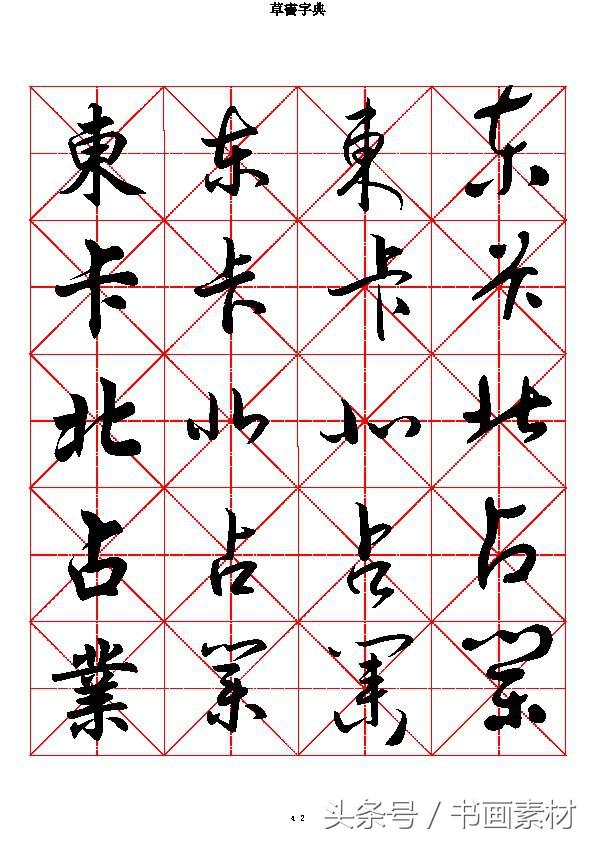 草書字典
東 东 東 东
卡 卡 卡 卡
北 北 北 北
占 占 占 占
業 業 業 業
42
头条号 / 书画素材